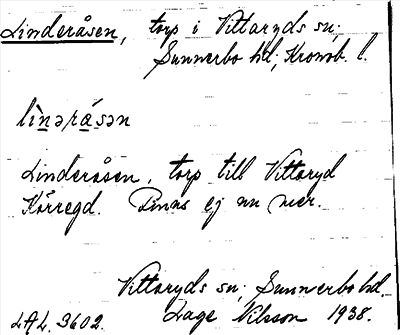 Linderåsen, torp i Vittaryds sn;
Sunnerbo hd; Kronob. l.
lìnəråsən
Linderåsen, torp till Vittaryd
Kårregd. Finns ej nu mer.
Vittaryds sn; Sunnerbo hd.
LAL. 3602. Lage Nilsson 1938.